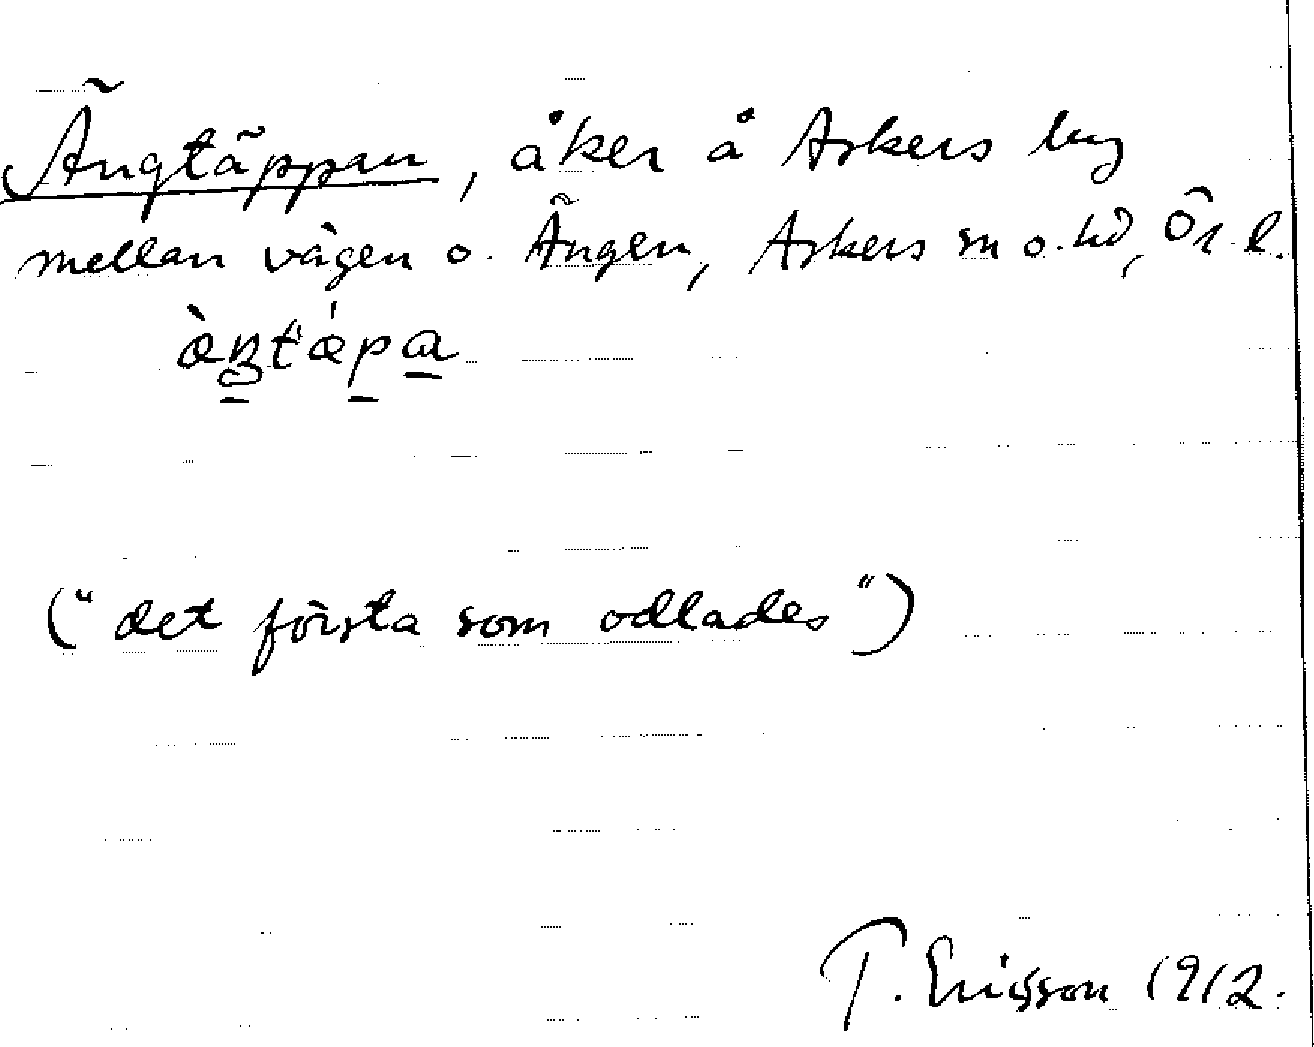 Ängtäppan, åker å Askers by
mellan vägen o. Ängen, Askers sn o. hd, Ör. l.
("det första som odlades")
T. Ericsson 1912.